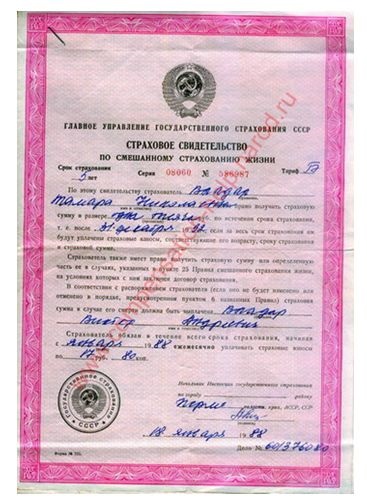 ГЛАВНОЕ УПРАВЛЕНИЕ ГОСУДАРСТВЕННОГО СТРАХОВАНИЯ СССР
СТРАХОВОЕ СВИДЕТЕЛЬСТВО
ПО СМЕШАННОМУ СТРАХОВАНИЮ ЖИЗНИ
Срок страхования Серия 08060 № 586987 Тариф
5 лет
По этому свидетельству страхователь
Тамара Николаевна имеет право получить страховую
сумму в размере по истечении срока страхования,
т. е. после 31 декабря 1992, если за весь срок страхования им
будут уплачены страховые взносы, соответствующие его возрасту, сроку страхования
и страховой сумме.
Страхователь также имеет право получить страховую сумму или определенную
часть ее в случаях, указанных в пункте 25 Правил смешанного страхования жизни,
на условиях которых с ним заключен договор страхования.
В соответствии с распоряжением страхователя (если оно не будет изменено или
отменено в порядке, предусмотренном пунктом 6 названных Правил) страховая
сумма в случае его смерти должна быть выплачена
Виктор Андреевич
Страхователь обязан в течение всего срока страхования, начиная
с января 1988 ежемесячно уплачивать страховые взносы
по 17 р. 80 коп.
Начальник Инспекции государственного страхования
по городу району
Перми области, края, АССР, ССР
18 января 1988
Дело № 601376080
ГОССТРАХ СССР
Форма №